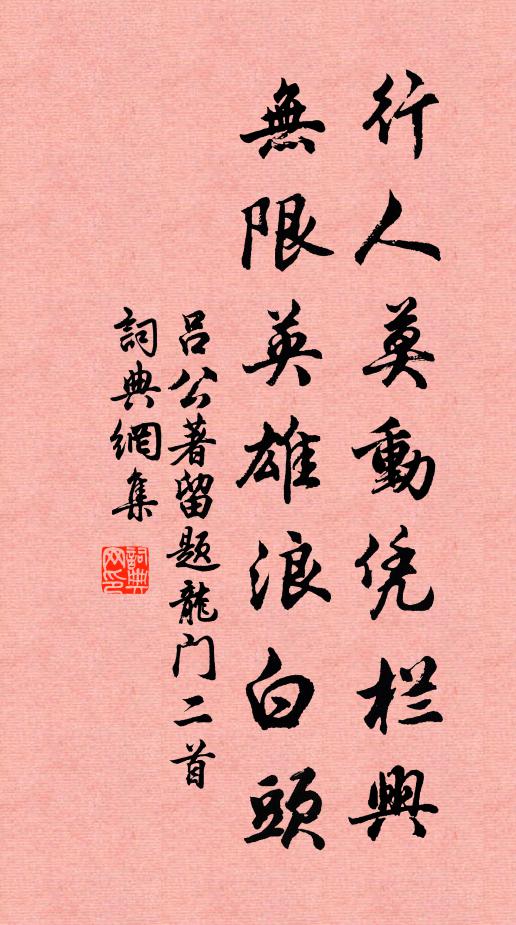 行人莫動凭栏興
無限英雄浪白頭
吕公著留题龍门二首
詞典網集
詞典网印